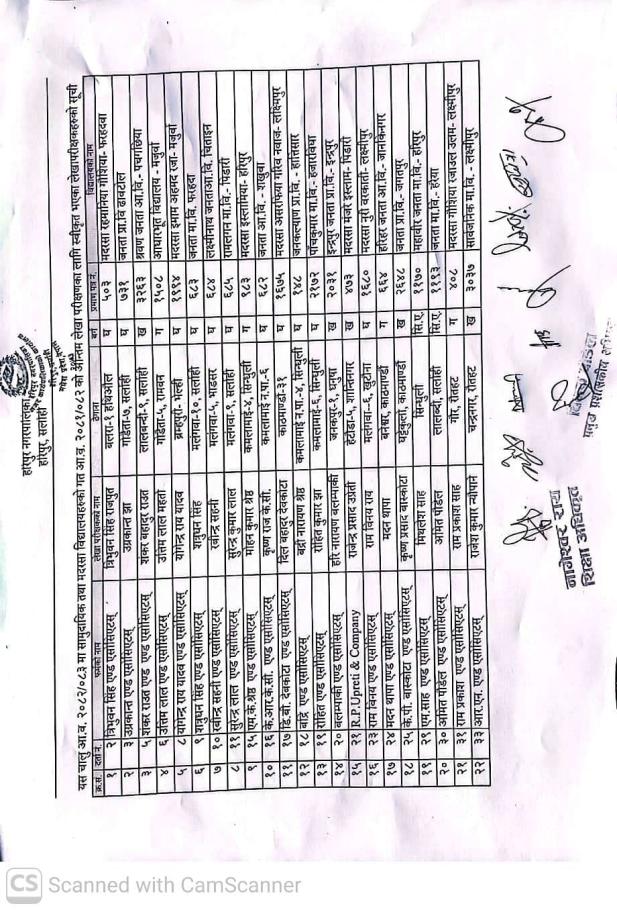 हरिपुर नगरपालिका
हरिपुर, सर्लाही
यस चालु आ.व. २०८२/०८३ मा सामुदायिक तथा मदरसा विद्यालयहरुको गत आ.व. २०८१/०८२ को अन्तिम लेखा परीक्षणका लागि स्वीकृत भएका लेखापरीक्षकहरुको सूची
क्र.सं. दर्ता नं. फर्मको नाम लेखा परीक्षकको नाम ठेगाना वर्ग प्रमाण पत्र नं. विद्यालयको नाम
१ २ त्रिभुवन सिंह एण्ड एसोसिएटस् त्रिभुवन सिंह राजपुत बलरा-१ हथिऔल घ ५०३ मदरसा रहमानिया गौशिया- फरहदवा
२ ३ उग्रकान्त एण्ड एसोसिएटस् उग्रकान्त झा गोडैता-७, सर्लाही घ ७३१ जनता प्रा.वि ढावटोल
३ ५ शंकर राउत एण्ड एसोसिएटस् शंकर बहादुर राउत लालबन्दी-१, सर्लाही ख ३२६३ श्रवण जनता आ.वि.- पचगछिया
४ ६ उत्तिम लाल एण्ड एसोसिएटस् उत्तिम लाल महतो गोडैता-५, रामबन ग १५०८ आधारभूत विद्यालय - मजुर्वा
५ ८ योगेन्द्र राय यादव एण्ड एसोसिएटस् योगेन्द्र राय यादव ब्रम्हपुरी- भेल्ही घ १९९४ मदरसा इमाम अहमद रजा- मजुर्वा
६ ९ शत्रुघन सिंह एण्ड एसोसिएटस् शत्रुघन सिंह मलंगवा-१०, सर्लाही घ ६८३ जनता मा.वि. फरहदा
७ १० रवीन्द्र सहनी एण्ड एसोसिएटस् रवीन्द्र सहनी मलंगवा-५, भाडसर ग ६८४ लक्ष्मीनाथ जनताआ.वि. चिताइन
८ ११ सुरेन्द्र लाल एण्ड एसोसिएटस् सुरेन्द्र कुमार लाल मलंगवा-९, सर्लाही घ ६८५ रामलगन मा.वि.- पिडारी
९ १५ एम.के.श्रेष्ठ एण्ड एसोसिएटस् मोहन कुमार श्रेष्ठ कमलामाई-४, सिन्धुली ग ९८३ मदरसा इस्लामिया- हरिपुर
१० १६ के.आर.के.सी. एण्ड एसोसिएटस् कृष्ण राज के.सी. कमलामाई न.पा.-६ घ ६८२ जनता आ.वि.- शखुवा
११ १७ डि.बी. देवकोटा एण्ड एसोसिएटस् दिल बहादुर देवकोटा काठमाण्डौ-३१ घ १६७५ मदरसा असरफिया गरिब नवाज- लक्ष्मिपुर
१२ १८ बद्रि एण्ड एसोसिएटस् बद्री नारायण श्रेष्ठ कमलामाई न.पा.-४, सिन्धुली घ १४८ जनकल्याण प्रा.वि. - हात्तिसार
१३ १९ रोहित एण्ड एसोसिएटस् रोहित कुमार झा कमलामाई-६, सिन्धुली घ २१७२ पाँचकुमार मा.वि.- हजारविघा
१४ २० बलम्पाकी एण्ड एसोसिएटस् हरि नारायण बलम्पाकी जनकपुर-१, धनुषा ख २०३१ इन्द्रपुर जनता प्रा.वि.- इन्द्रपुर
१५ २१ R.P.Upreti & Company राजेन्द्र प्रसाद उप्रेती हेटौडा-५, शान्तिनगर ख ४७३ मदरसा मंजरे इस्लाम- पिडारी
१६ २३ राम विनय एण्ड एसोसिएटस् राम विनय राय मलंगवा-६, खुटौना घ १६८० मदरसा नुरी बरकाती- लक्ष्मीपुर
१७ २४ मदन थापा एण्ड एसोसिएटस् मदन थापा बनेश्वर, काठमाण्डौ ग ६६४ हरिहर जनता आ.वि.- जानकिनगर
१८ २५ के.पी. बास्कोटा एण्ड एसोसिएटस् कृष्ण प्रसाद बास्कोटा घट्टेकुलो, काठमाण्डौ ख २६४८ जनता प्रा.वि.- जगतपुर
१९ २९ एम.साह एण्ड एसोसिएटस् मिथलेश साह सिन्धुली सि.ए. ११७० महावीर जनता मा.वि.- हरिपुर
२० ३० अमित पौडेल एण्ड एसोसिएटस् अमित पौडेल लालबन्दी, सर्लाही सि.ए. ११९३ जनता मा.वि.- हरैया
२१ ३१ राम प्रकाश एण्ड एसोसिएटस् राम प्रकाश साह गौर, रौतहट ग ४०८ मदरसा गौशिया रजाउल उलम- लक्ष्मीपुर
२२ ३३ आर.एन. एण्ड एसोसिएटस् राजेश कुमार न्यौपाने चन्द्रनगर, रौतहट ख ३०३७ सार्वजनिक मा.वि. - लक्ष्मीपुर
नागेश्वर राय
शिक्षा अधिकृत
प्रमुख प्रशासकीय अधिकृत
CS Scanned with CamScanner